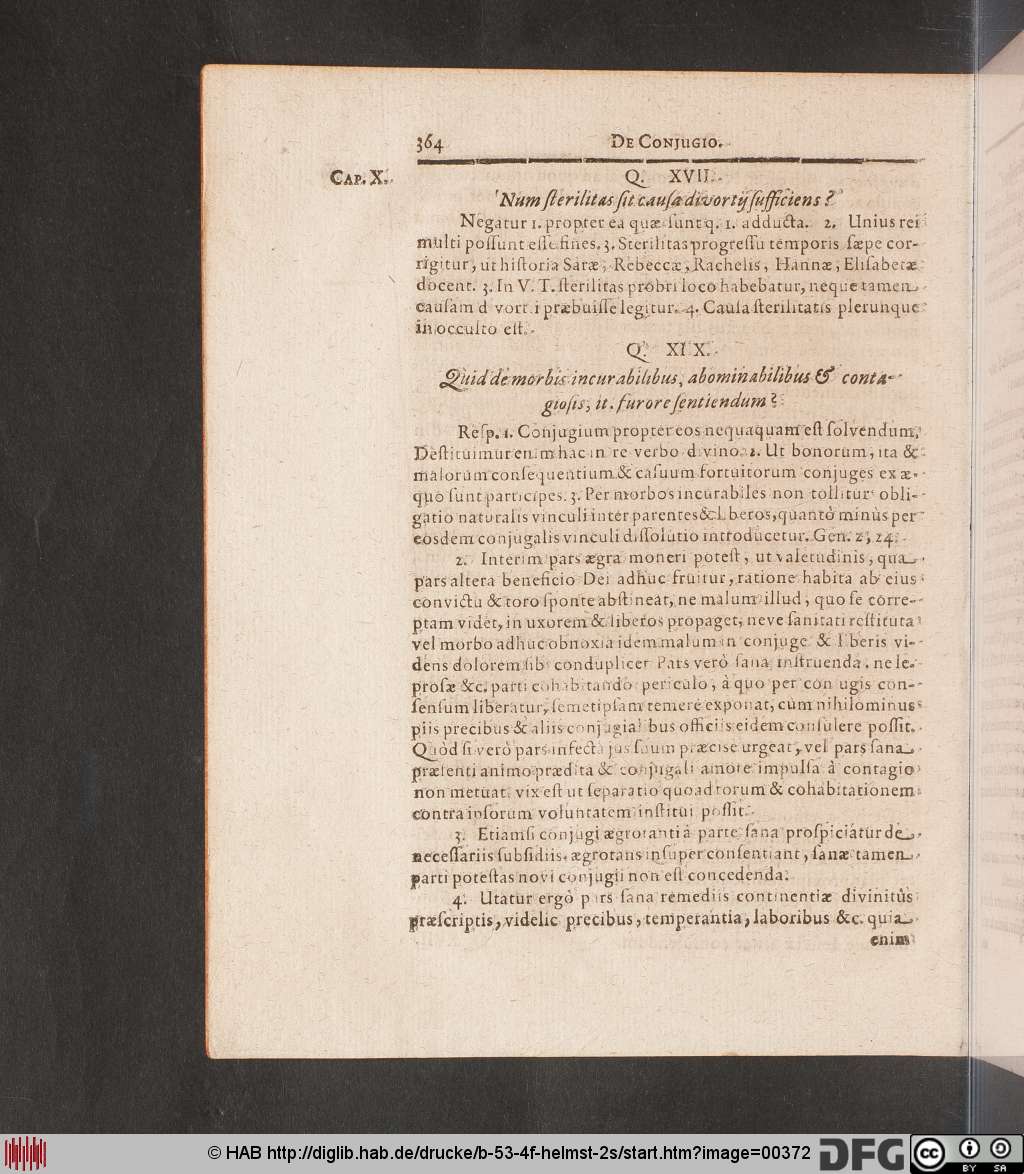 364 DE CONJUGIO.
CAP. X.
Q. XVII.
Num ſterilitas ſit cauſa divortij ſufficiens?
Negatur 1. propter ea quæ ſunt q. 1. adducta. 2. Unius rei
multi poſſunt eſſe fines. 3. Sterilitas progreſſu temporis ſæpe cor-
rigitur, ut hiſtoria Saræ, Rebeccæ, Rachelis, Hannæ, Eliſabetæ
docent. 3. In V. T. ſterilitas probri loco habebatur, neque tamen
cauſam d vort i præbuiſſe legitur. 4. Cauſa ſterilitatis plerunque
in occulto eſt.
Q. XIX.
Quid de morbis incurabilibus, abominabilibus & conta-
gioſis, it. furore ſentiendum?
Reſp. 1. Conjugium propter eos nequaquam eſt ſolvendum,
Deſtituimur enim hac in re verbo divino. 2. Ut bonorum, ita &
malorum conſequentium & caſuum fortuitorum conjuges ex æ-
quo ſunt participes. 3. Per morbos incurabiles non tollitur obli-
gatio naturalis vinculi inter parentes & l beros, quantò minùs per
eosdem conjugalis vinculi diſſolutio introducetur. Gen. 2, 24.
2. Interim pars ægra moneri poteſt, ut valetudinis, qua
pars altera beneficio Dei adhuc fruitur, ratione habita ab ejus
convictu & toro ſponte abſtineat, ne malum illud, quo ſe corre-
ptam videt, in uxorem & liberos propaget, neve ſanitati reſtituta
vel morbo adhuc obnoxia idem malum in conjuge & l beris vi-
dens dolorem ſibi conduplicet Pars verò ſana inſtruenda, ne le-
proſæ &c. parti cohabitando periculo, à quo per con ugis con-
ſenſum liberatur, ſemetipſam temerè exponat, cùm nihilominus
piis precibus & aliis conjugial bus officiis eidem conſulere poſſit.
Quòd ſi verò pars infecta jus ſuum præcisè urgeat, vel pars ſana
præſenti animo prædita & conjugali amore impulſa à contagio
non metuat, vix eſt ut ſeparatio quoad torum & cohabitationem
contra ipſorum voluntatem inſtitui poſſit.
3. Etiamſi conjugi ægrotanti à parte ſana proſpiciatur de
neceſſariis ſubſidiis, ægrotans inſuper conſentiant, ſanæ tamen
parti poteſtas novi conjugii non eſt concedenda.
4. Utatur ergò p rs ſana remediis continentiæ divinitùs
præſcriptis, videlic precibus, temperantia, laboribus &c. quia
enim
© HAB http://diglib.hab.de/drucke/b-53-4f-helmst-2s/start.htm?image=00372
DFG
cc BY SA